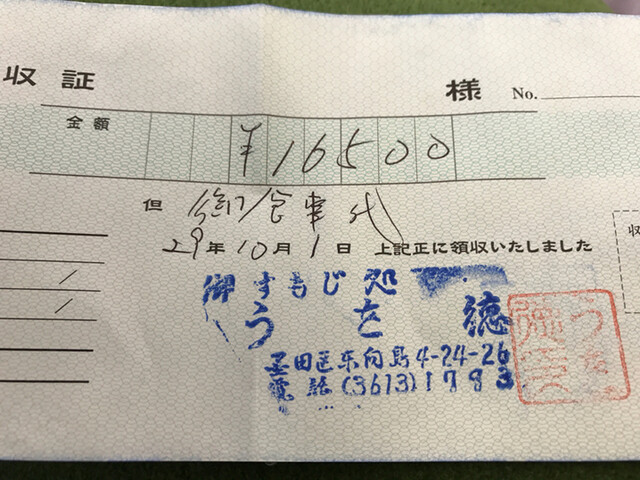 収証 様 No.
金額 ¥16500
但 御食事代
29年10月1日 上記正に領収いたしました
収
御すもじ処
うを徳
墨田区東向島4-24-26
電話(3613)1793